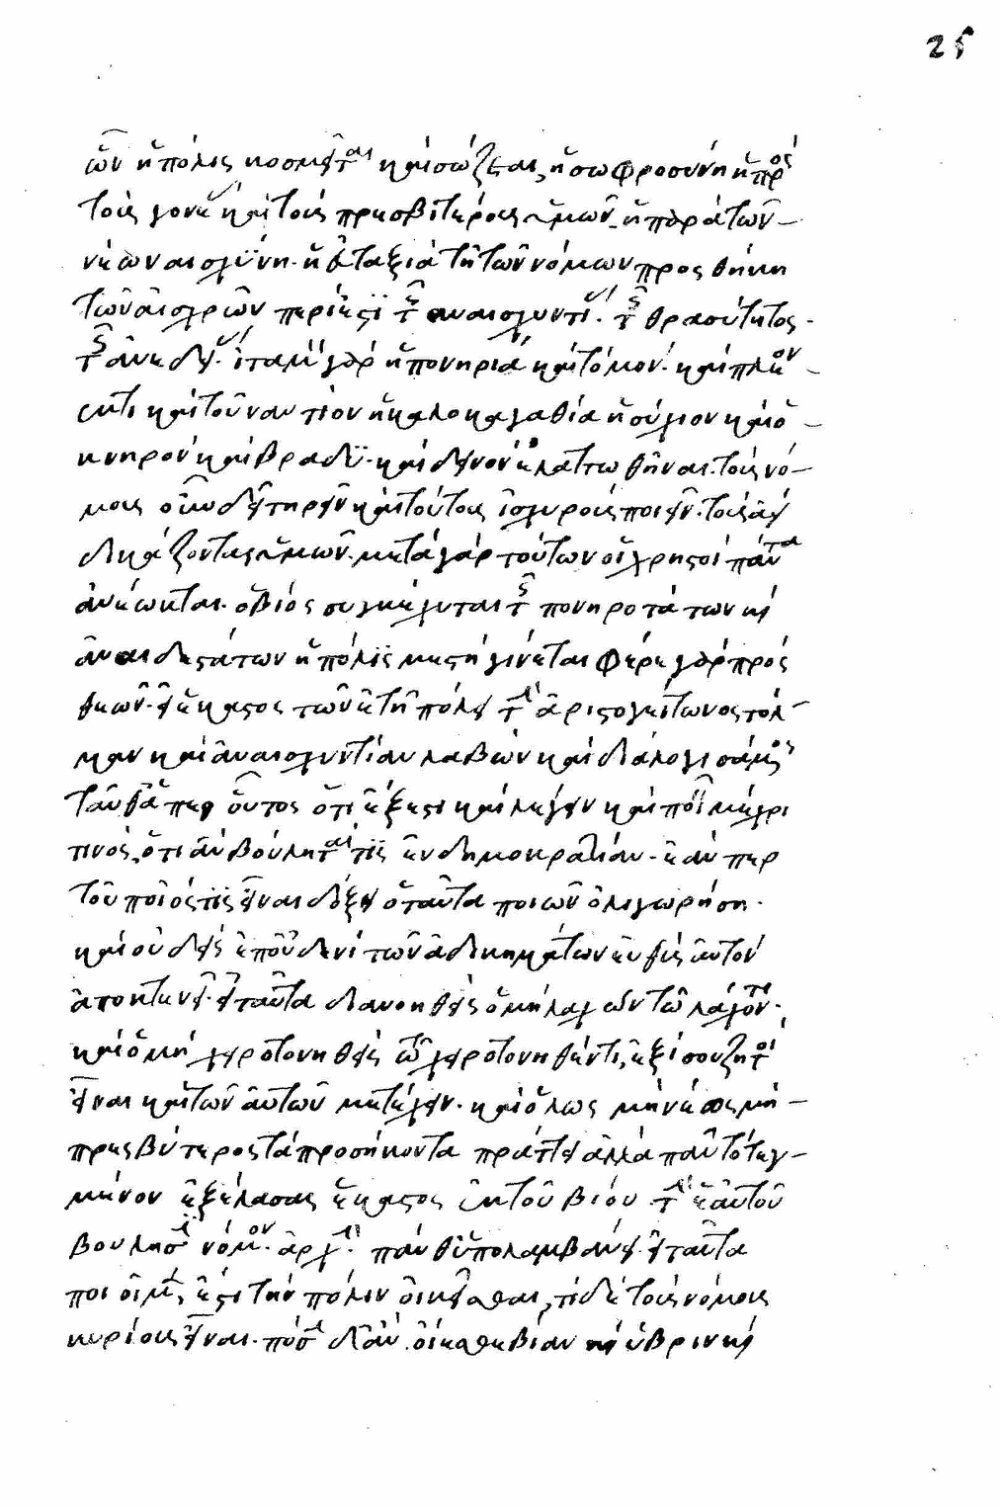 ὧν ἡ πόλις κοσμεῖται καὶ σώζεται, ἡ σωφροσύνη ἡ πρὸς
τοὺς γονεῖς καὶ τοὺς πρεσβυτέρους ὑμῶν. ἡ παρὰ τῶν
νέων αἰσχύνη. ἡ εὐταξία τῇ τῶν νόμων προσθήκη
τῶν αἰσχρῶν περίεστι τῆς ἀναισχυντίας. τῆς θρασύτητος.
τῆς ἀναιδείας. ἰταμὸν γὰρ ἡ πονηρία καὶ τολμηρὸν. καὶ πλεον
εκτι καὶ τοῦναντίον ἡ καλοκαγαθία ἡσύχιον καὶ ὀ
κνηρὸν καὶ βραδὺ. καὶ δεινὸν ἐλαττωθῆναι. τοὺς νό
μους οὖν δεῖ τηρεῖν καὶ τούτους ἰσχυροὺς ποιεῖν. τοὺς ἀεὶ
δικάζοντας ὑμῶν. μετὰ γὰρ τούτων οἱ χρηστοὶ πάντα
ἀνέωκται. ὁ βίος συγκέχυται τῆς πονηροτάτων καὶ
ἀναιδεστάτων ἡ πόλις μεστὴ γίνεται φέρε γὰρ πρὸς
θεῶν. εἰ ἕκαστος τῶν ἐν τῇ πόλει τὴν ἀριστογείτωνος τόλ
μαν καὶ ἀναισχυντίαν λαβὼν καὶ διαλογισάμενος
ταῦθ' ἅπερ οὗτος ὅτι ἔξεστι καὶ λέγειν καὶ ποιεῖν μέχρι
τινὸς, ὅτι ἂν βούληται τις ἐν δημοκρατίαν. ἐάν περ
τοῦ ποῖός τις εἶναι δόξει ὁ ταῦτα ποιῶν ὀλιγωρήση.
καὶ οὐδεὶς ἐπ' οὐδενὶ τῶν ἀδικημάτων εὐθὺς αὐτὸν
ἀποκτενεῖ. εἰ ταῦτα διανοηθεὶς ὁ μὴ λαχὼν τῷ λαχόντι.
καὶ ὁ μὴ χειροτονηθεὶς τῷ χειροτονηθέντι, ἐξίσου ζητοῖ
εἶναι καὶ τῶν αὐτῶν μετέχειν. καὶ ὅλως μὴ νέος μὴ
πρεσβύτερος τὰ προσήκοντα πράττει ἀλλὰ πᾶν τὸ τεγ
μένον ἐξελάσας ἕκαστος ἐκ τοῦ βίου τὴν ἑαυτοῦ
βουλησιν νόμον. ἀρχὴν. πάνθ' ὑπολαμβάνει. εἰ ταῦτα
ποιοῖμεν, ἔστι τὴν πόλιν οἰκεῖσθαι, τί δὲ τοὺς νόμους
κυρίους εἶναι. πόσην δ' ἂν οἴεσθε βίαν καὶ ὕβριν καὶ